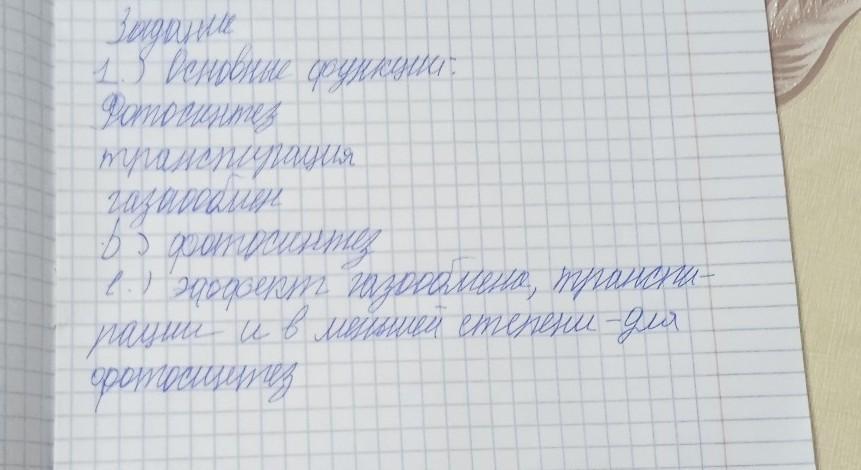 Задание
1.) Основные функции:
Фотосинтез
транспирация
газаообмен
b) фотосинтез
с.) эффект газообмена, транспи-
рации и в меньшей степени-для
фотосинтез